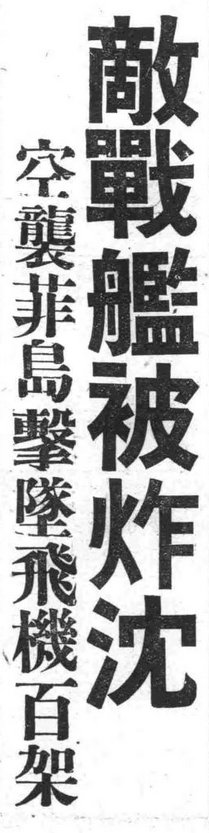 敵戰艦被炸沈
空襲菲島擊墜飛機百架